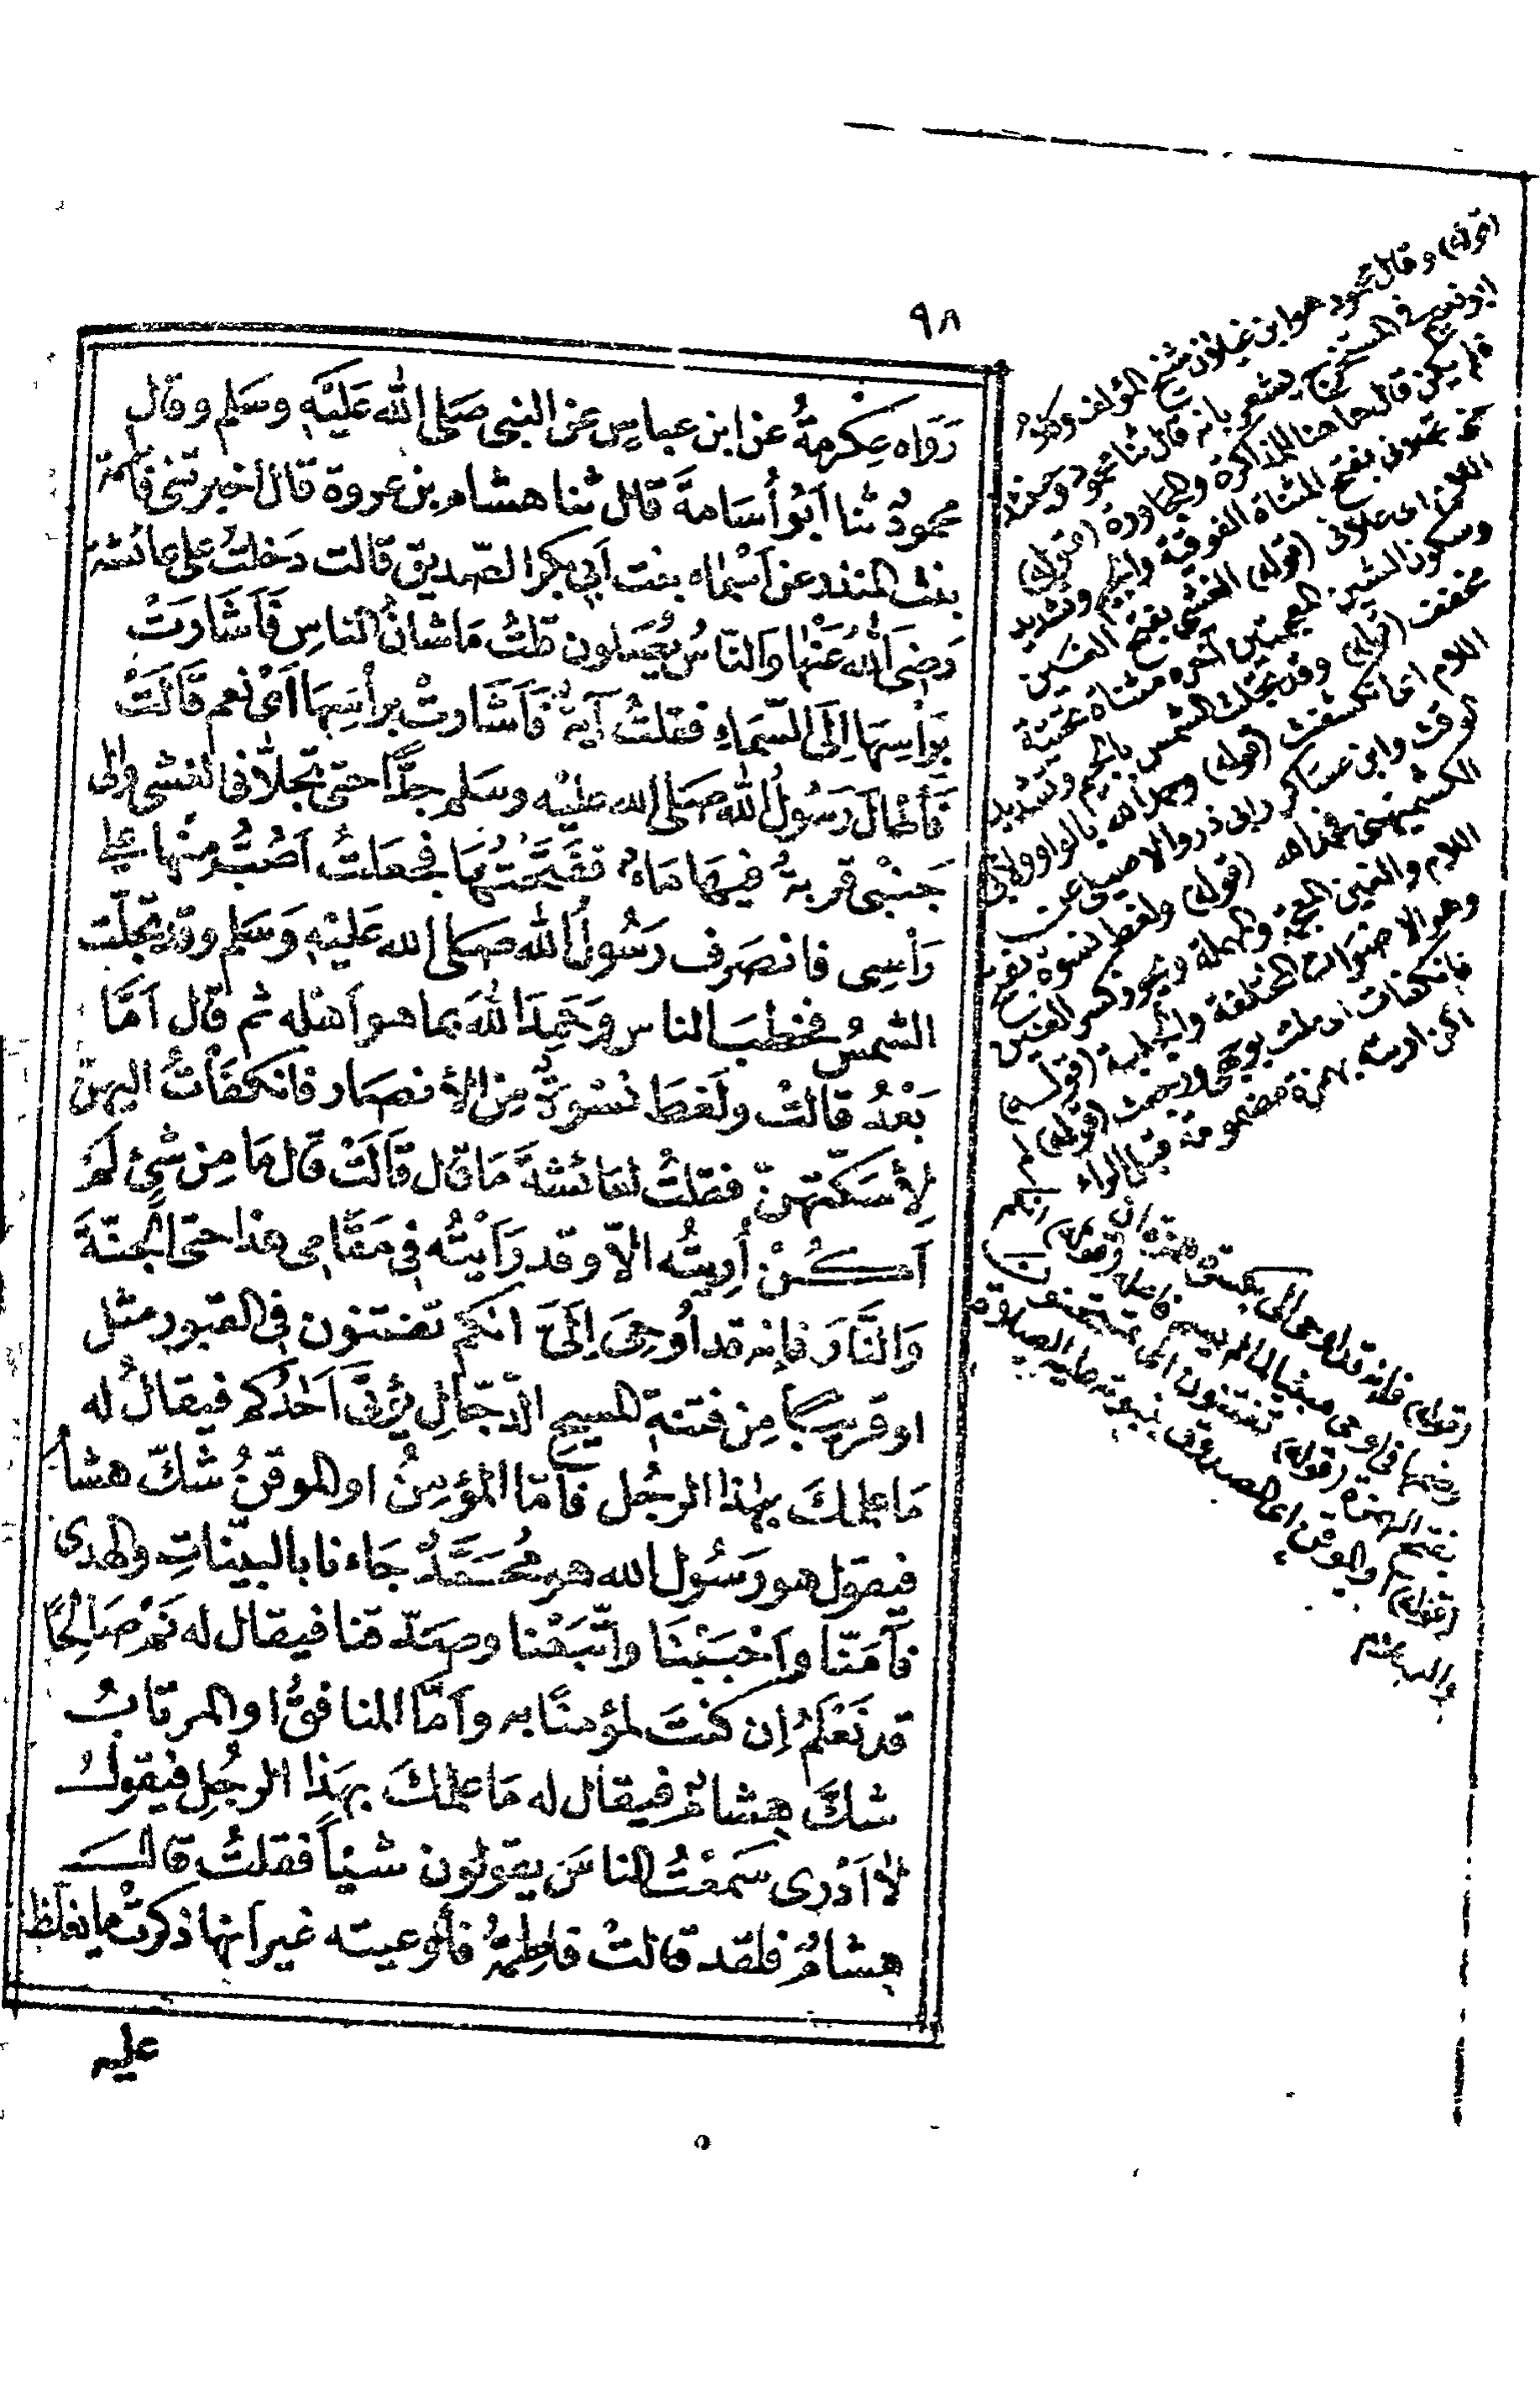 ٩٨
رَوَاه عِكرمةُ عن ابن عباس عن النبى صَلى الله عَلَيْه وسَلم وقال
محمودٌ ثنا اَبُو أُسَامةَ قال ثنا هشام بن عروة قال اخبرتنى فاطمة
بنتُ المنذر عن اَسْمَاء بنت اَبى بكر الصّديق قالت دَخلتُ على عائشة
رَضِىَ اللهُ عَنْها وَالنّاسُ يُصَلون قلتُ مَا شانُ الناسِ فَاَشَارَتْ
بَرأسِهَا اِلَى السّمَاءِ فقلتُ آيةٌ فَاَشَارتْ برأسِهَا اَىْ نعم قَالَتْ
فَأطَالَ رَسُولُ الله صَلى الله عليْه وسَلم جدًّا حتى تجلاّنى الغشى والى
جَنبْى قربةٌ فيهَا مَاءٌ فَفَتَحْتُهَا فجعَلتُ اَصُبُّ منْها على
رَأسِى فانصَرف رَسُولُ الله صَلى الله عَليْه وَسَلم وقد تجلّت
الشمسُ فخطبَ الناس وَحَمِدَ اللهَ بما هو اَهْله ثم قال اَمَّا
بَعْدُ قالتْ ولَغطَ نسْوَةٌ مِن الأنصَار فانكفَأتُ اليهنّ
لأُسَكّتهنّ فقلتُ لعَائشةَ مَا قال قَالَتْ قال مَا مِن شىْءٍ لَمْ
اَكُنْ أُرِيتُه الاّ وقد رَاَيْتُه فى مَقَامى هذا حتى الجنّةَ
وَالنَّارَ فإنه قد اُوحِىَ اِلَىّ انكم تفتنون فى القبور مثل
او قريبًا مِن فتنة المسيح الدّجّالِ يؤتَى اَحَدُكم فيقالُ له
مَا علمكَ بهٰذا الرجُل فاَمّا المؤمِنُ او الموقنُ شكّ هشامٌ
فيقول هو رَسُول الله هو مُحَمَّدٌ جَاءنا بالبيّناتِ والهدى
فآمَنّا واَجَبْنَا واتّبَعْنا وصَدّقنا فيقال له نَمْ صَالِحًا
قد نَعْلمُ اِن كنتَ لمؤمنًا به واَمّا المنافقُ او المرتابُ
شكَّ هشامٌ فيقال له مَا علمكَ بهَذا الرجُلِ فيقولُ
لا اَدْرى سَمعْتُ الناسَ يقولون شيْأً فقلتُ قال
هشامٌ فلقد قالتْ فاطمةُ فأوعيته غير اَنها ذكرتْ ما يغلظ
عليه
(قوله) وقال محمود هو ابن غيلان شيخ المؤلف وكلام
ابو نعيم فى المستخرج يشعر بانه قال ثنا محمود وحينئذ
فلم يكن قالها هنا للمذاكرة والمحاورة (قوله)
حتى تجلانى بفتح المثناة الفوقية والجيم وتشديد
اللام اى علانى (قوله) الغشى بفتح الغين
وسكون الشين المعجمتين آخره مثناة تحتية
مخففة (قوله) وقد تجلت الشمس بالجيم وتشديد
اللام اى انكشفت (قوله) وحمد الله بالواو ولابى
الوقت وابن عساكر وابى ذر والاصيلى عن
الكشميهنى فحمد الله (قوله) ولغط نسوة بفتح
اللام والغين المعجمة والمهملة ويجوز كسر الغين
وهو الاصوات المختلفة والجلبة (قوله)
فانكفأت اى ملت بوجهى ورجعت (قوله) لم
اكن اريته بهمزة مضمومة قبل الراء
(قوله) فانه قد اوحى الى
(قوله) انكم
بفتح الهمزة (قوله) تفتنون اى تمتحنون
(قوله) والموقن اى المصدق بنبوته عليه الصلاة
والسلام